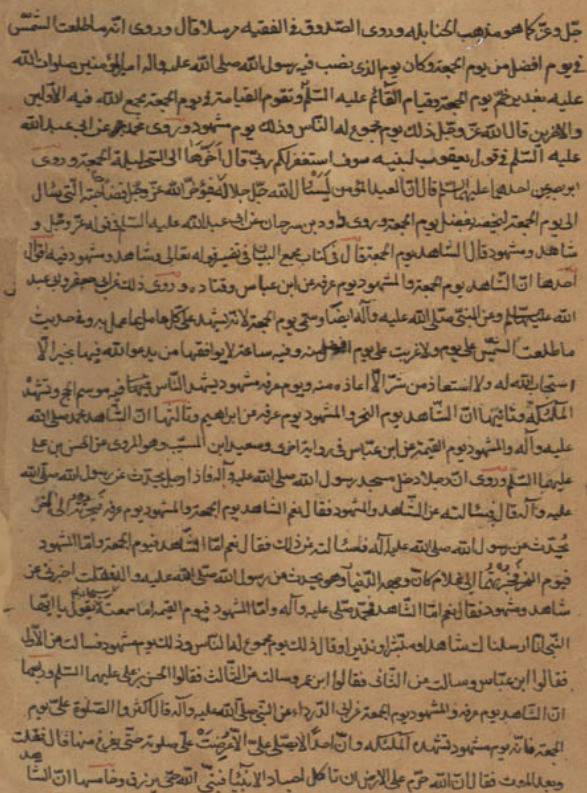 جل وعز كما هو مذهب الحنابله وروى الصدوق في الفقيه مرسلا قال وروى انه ما طلعت الشمس
في يوم افضل من يوم الجمعة وكان يوم الذي نصب فيه رسول الله صلى الله عليه واله امير المؤمنين صلوات الله
عليه بغدير خم يوم الجمعة وقيام القائم عليه السلم وتقوم القيامة في يوم الجمعة يجمع الله فيه الاولين
والاخرين قال الله عز وجل ذلك يوم مجموع له الناس وذلك يوم مشهود وروى محمد بن مسلم عن ابي عبد الله
عليه السلم في قول يعقوب لبنيه سوف استغفر لكم ربي قال اخرها الى السحر ليلة الجمعة وروى
ابو بصير عن احدهما عليهما السلم قال ان العبد المؤمن ليسئال الله جل جلاله فيؤخر الله عز وجل قضاء حاجته التي سال
الى يوم الجمعة ليخصه بفضل يوم الجمعة وروى داود بن سرحان عن ابي عبد الله عليه السلم في قوله عز وجل و
شاهد ومشهود قال الشاهد يوم الجمعة قال في كتاب مجمع البيان في تفسير قوله تعالى وشاهد ومشهود فيه اقوال
احدها ان الشاهد يوم الجمعة والمشهود يوم عرفه عن ابن عباس وقتاده وروى ذلك عن ابي جعفر وابي عبد
الله عليهما السلم وعن النبي صلى الله عليه وآله ايضا وسمي يوم الجمعة لانه يشهد على كل عامل بما عمل به وفي حديث
ما طلعت الشمس على يوم ولا غربت على يوم افضل منه وفيه ساعة لا يوافقها من يدعو الله فيها بخير الا
استجاب الله له ولا استعاذ من شر الا اعاذه منه ويوم عرفه مشهود يشهد الناس فيه موسم الحج وتشهده
الملئكة وثانيها ان الشاهد يوم النحر والمشهود يوم عرفه عن ابراهيم وثالثها ان الشاهد محمد صلى الله
عليه وآله والمشهود يوم القيمة عن ابن عباس في رواية اخرى وسعيد ابن المسيب وهو المروي عن الحسن بن علي
عليهما السلم وروى ان رجلا دخل مسجد رسول الله صلى الله عليه وآله فاذا رجل يحدث عن رسول الله صلى الله
عليه وآله قال فسالته عن الشاهد والمشهود فقال نعم الشاهد يوم الجمعة والمشهود يوم عرفه فجزته الى اخر
يحدث عن رسول الله صلى الله عليه وآله فسالته عن ذلك فقال نعم اما الشاهد فيوم الجمعة واما المشهود
فيوم النحر فجزتهما الى غلام كان وجهه الدينار وهو يحدث عن رسول الله صلى الله عليه وآله فقلت اخبرني عن
شاهد ومشهود فقال نعم اما الشاهد فمحمد صلى عليه وآله واما المشهود فيوم القيمة اما سمعته يقول يا ايها
النبي انا ارسلناك شاهدا ومبشرا ونذيرا وقال ذلك يوم مجموع له الناس وذلك يوم مشهود فسالت عن الاول
فقالوا ابن عباس وسالت عن الثاني فقالوا ابن عمر وسالت عن الثالث فقالوا الحسن بن علي عليهما السلم ورابعها
ان الشاهد يوم عرفه والمشهود يوم الجمعة عن ابي الدرداء عن النبي صلى الله عليه وآله قال اكثروا الصلوة علي يوم
الجمعة فانه يوم مشهود تشهده الملئكة وان احدا لا يصلي علي الا عرضت علي صلوته حتى يفرغ منها قال فقلت
وبعد الموت فقال ان الله حرم على الارض ان تاكل اجساد الانبياء فنبي الله حي يرزق وخامسها ان الشاهد